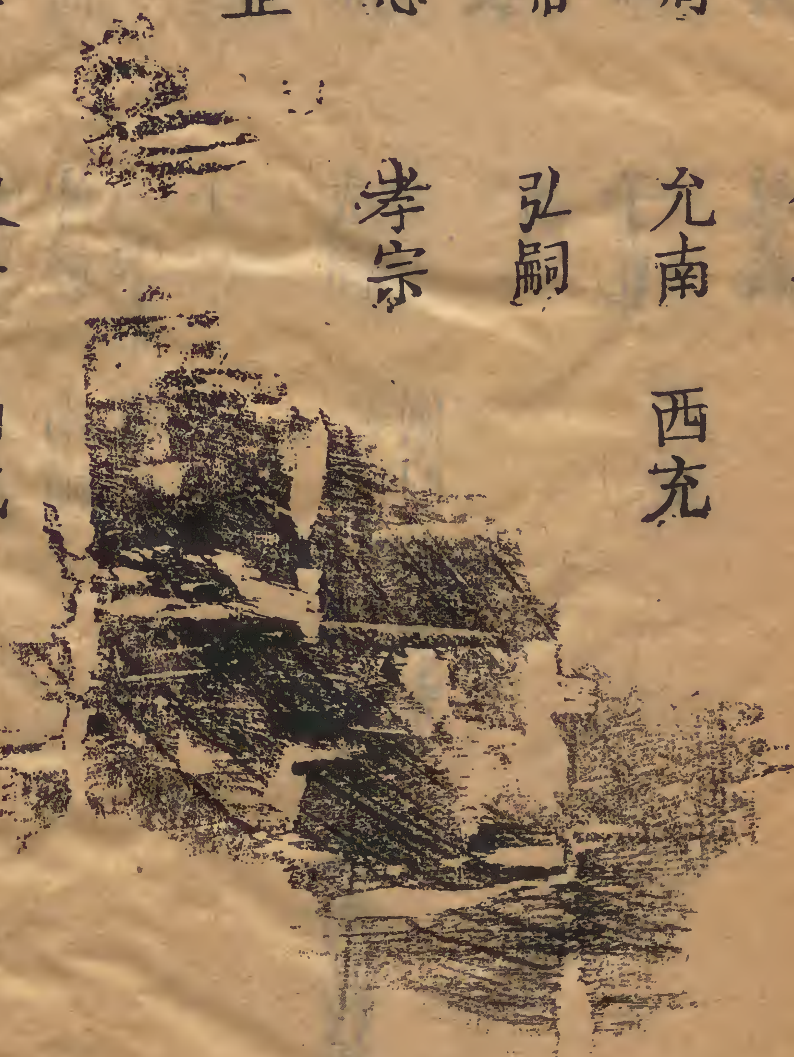 允南 西充
弘嗣
孝宗